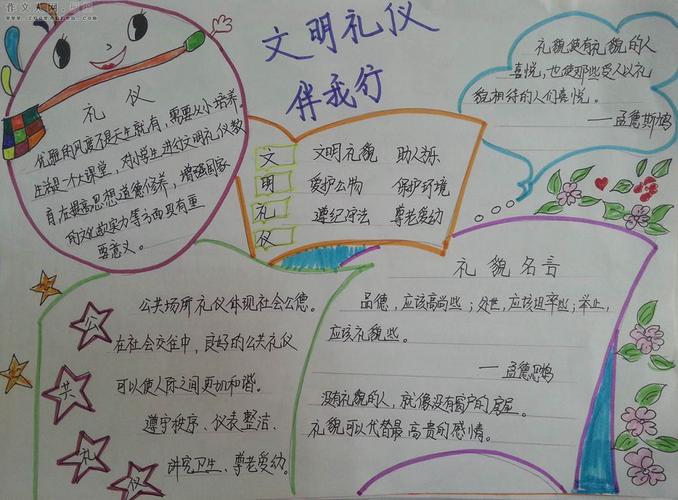 作文人网
文明礼仪
伴我行
礼仪
优雅的风度不是天生就有,需要从小培养。
生活是一个大课堂,对小学生进行文明礼仪教
育在提高思想道德修养,增强国家
的文化软实力等方面具有重
要意义。
文 文明礼貌 助人为乐
明 爱护公物 保护环境
礼 遵纪守法 尊老爱幼
仪
礼貌使有礼貌的人
喜悦,也使那些受人以礼
貌相待的人们喜悦。
——孟德斯鸠
公共礼仪
公共场所礼仪体现社会公德。
在社会交往中,良好的公共礼仪
可以使人际之间更加和谐。
遵守秩序、仪表整洁、
讲究卫生、尊老爱幼。
礼貌名言
品德,应该高尚些;处世,应该坦率些;举止,
应该礼貌些。
——孟德思鸠
没有礼貌的人,就像没有窗户的房屋。
礼貌可以代替最高贵的感情。